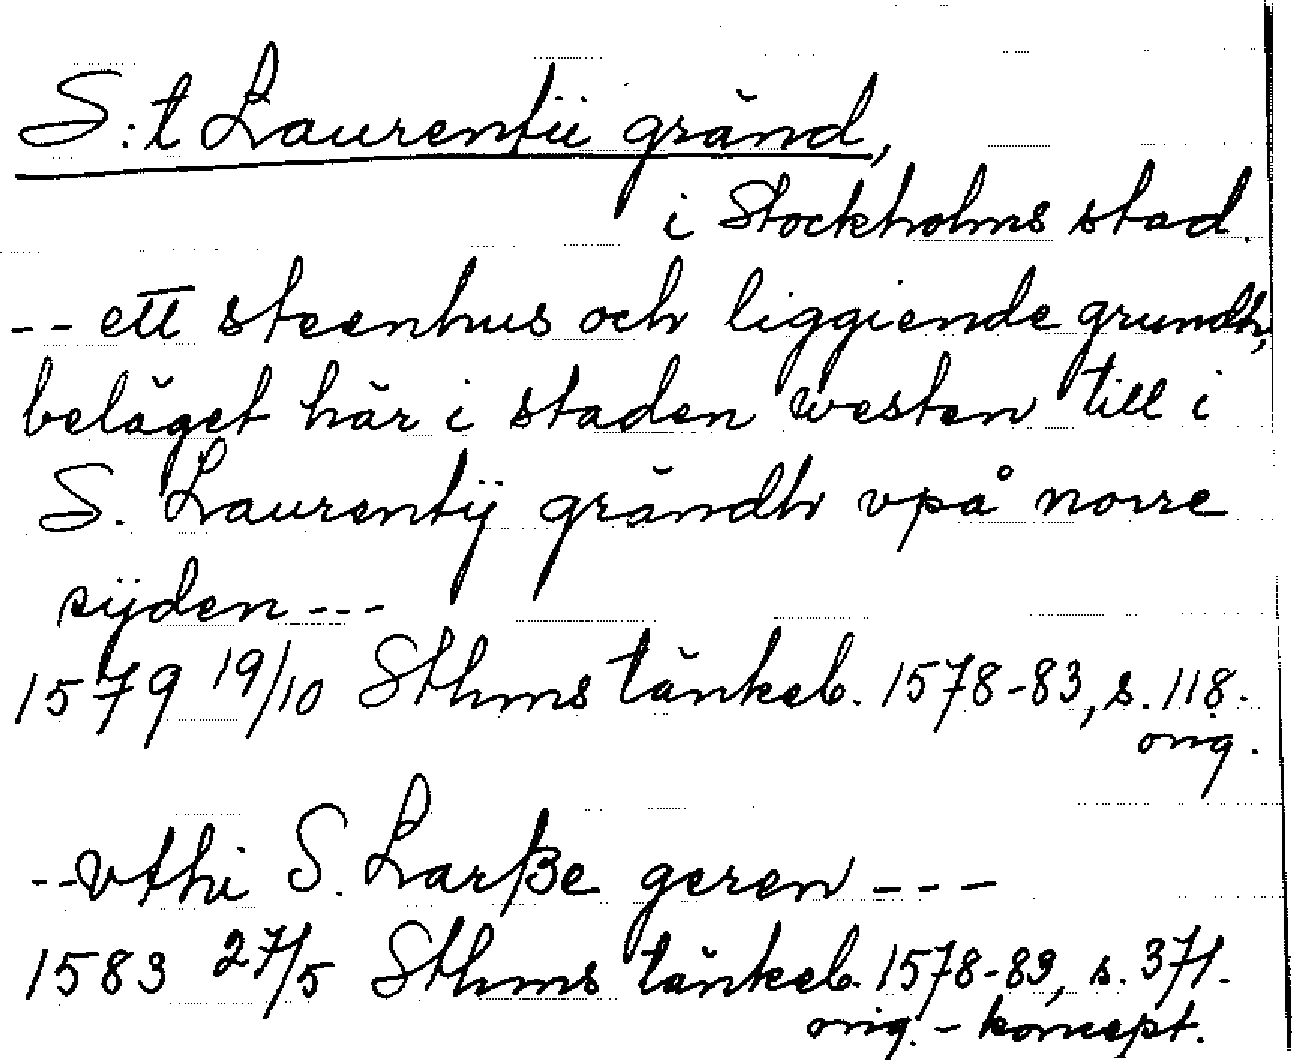 S:t Laurentii gränd,
i Stockholms stad.
-- ett steenhus och liggiende grundh,
beläget här i staden westen till i
S. Laurentÿ grändh vpå norre
sÿden ---
1579 19/10 Sthms tänkeb. 1578-83, s. 118.
orig.
-- vthi S. Larße geren ---
1583 27/5 Sthms tänkeb. 1578-83, s. 371.
orig. - koncept.